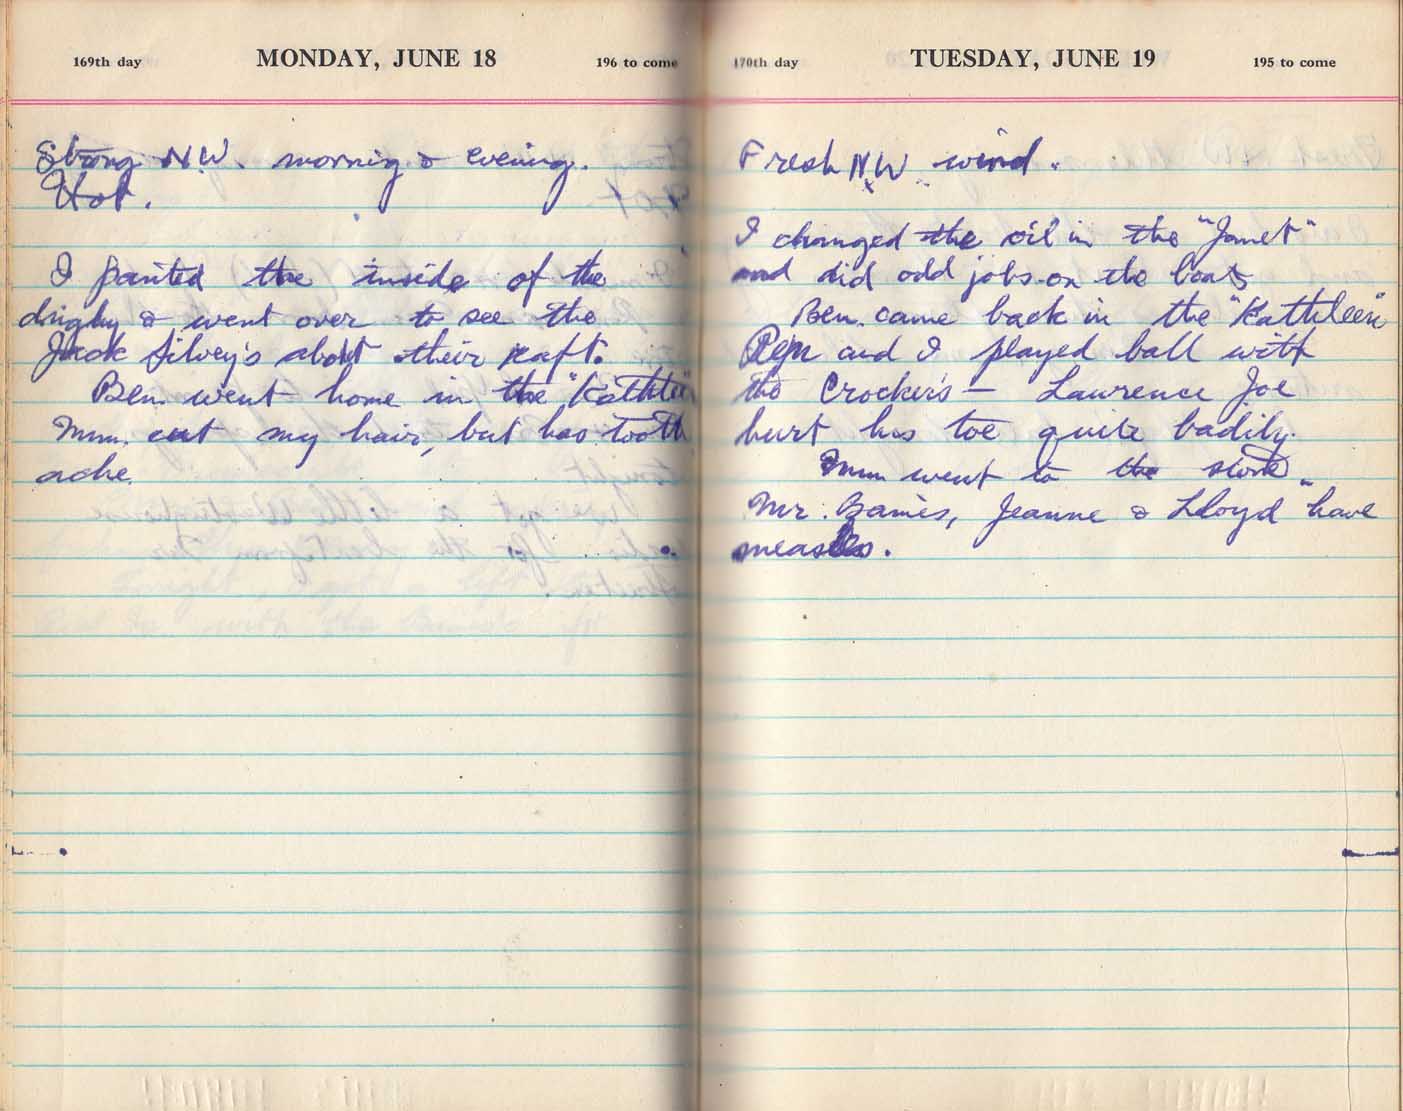 169th day MONDAY, JUNE 18 196 to come
Strong N.W. morning & evening.
Hot.
I panted the inside of the
dinghy & went over to see the
Jack Silvey's about their raft.
Ben went home in the "Kathleen
Mum. cut my hair, but has tooth
ache.
170th day TUESDAY, JUNE 19 195 to come
Fresh NW wind.
I changed the oil in the "Janet"
and did odd jobs on the boats
Ben. came back in the "Kathleen"
Ben and I played ball with
the Crocker's — Lawrence Joe
hurt his toe quite badily.
Mum went to the store
Mr. Baines, Jeanne & Lloyd have
measles.